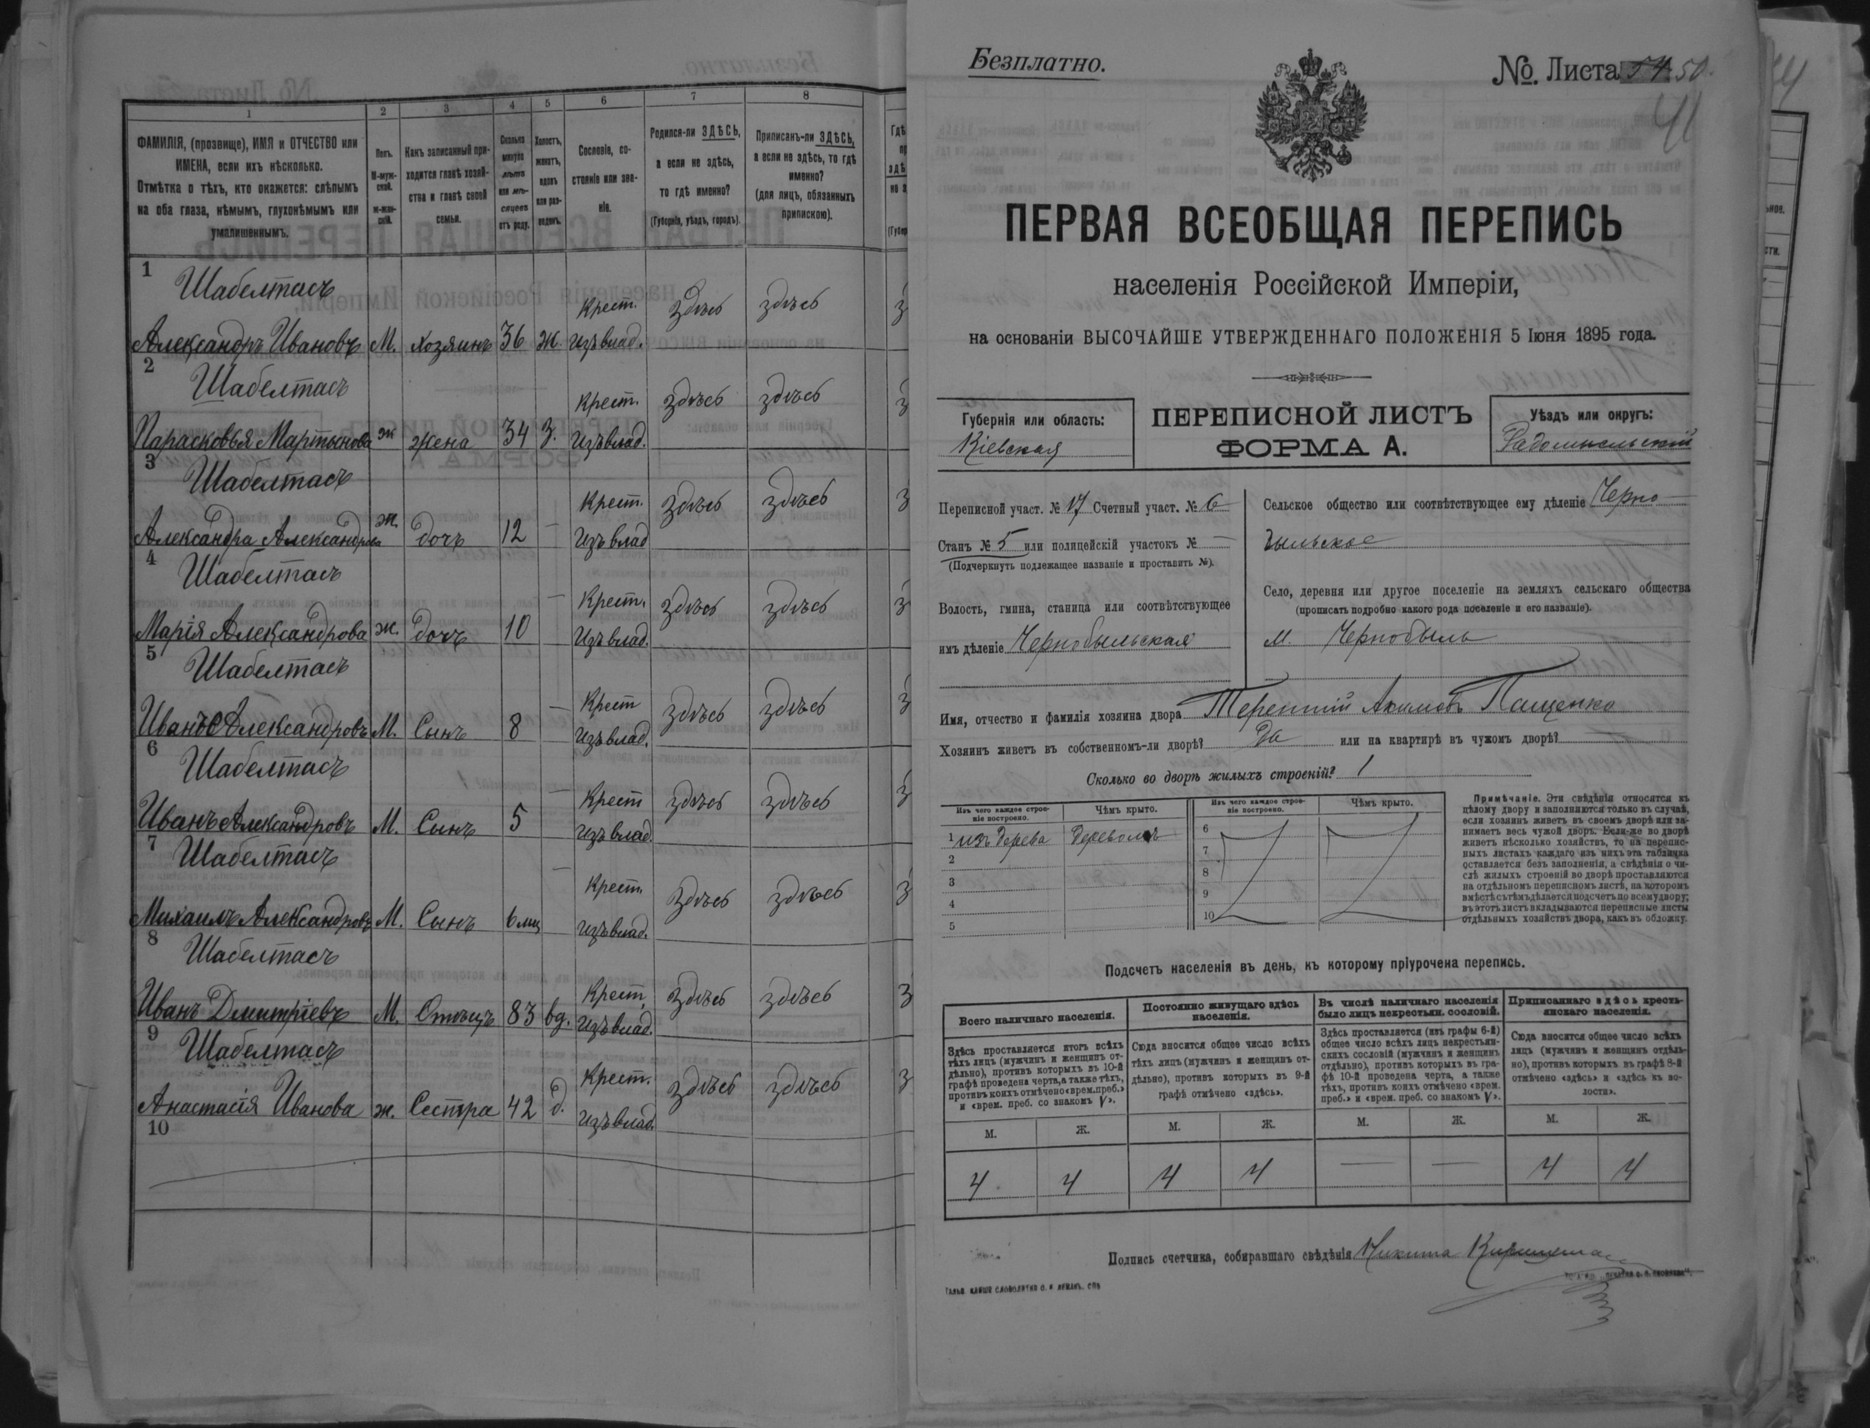 1 2 3 4 5 6 7 8
ФАМИЛІЯ, (прозвище), ИМЯ и ОТЧЕСТВО или
ИМЕНА, если ихъ нѣсколько.
Отмѣтка о тѣхъ, кто окажется: слѣпымъ
на оба глаза, нѣмымъ, глухонѣмымъ или
умалишеннымъ.
Полъ.
М-муж-
ской.
ж-жен-
скій.
Какъ записанный при-
ходится главѣ хозяй-
ства и главѣ своей
семьи.
Сколько
минуло
лѣтъ
или мѣ-
сяцевъ
отъ роду.
Холостъ,
женатъ,
вдовъ
или раз-
веденъ.
Сословіе, со-
стояніе или зва-
ніе.
Родился-ли ЗДѢСЬ,
а если не здѣсь,
то гдѣ именно?
(Губернія, уѣздъ, городъ).
Приписанъ-ли ЗДѢСЬ,
а если не здѣсь, то гдѣ
именно?
(для лицъ, обязанныхъ
припискою).
1
Шабелтасъ
Александръ Ивановъ М. хозяинъ 36 ж. Крест. изъ влад. здѣсь здѣсь
2
Шабелтасъ
Парасковья Мартынова ж жена 34 З. Крест. изъ влад. здѣсь здѣсь
3
Шабелтасъ
Александра Александрова ж. дочь 12 — Крест. изъ влад здѣсь здѣсь
4
Шабелтасъ
Марія Александрова ж. дочь 10 — Крест. изъ влад. здѣсь здѣсь
5
Шабелтасъ
Иванъ Александровъ М. Сынъ 8 — Крест изъ влад. здѣсь здѣсь
6
Шабелтасъ
Иванъ Александровъ М. Сынъ 5 — Крест изъ влад здѣсь здѣсь
7
Шабелтасъ
Михаилъ Александровъ М. Сынъ 6 мц — Крест. изъ влад. здѣсь здѣсь
8
Шабелтасъ
Иванъ Дмитріевъ М. Отецъ 83 вд. Крест. изъ влад. здѣсь здѣсь
9
Шабелтасъ
Анастасія Иванова ж. Сестра 42 д. Крест. изъ влад. здѣсь здѣсь
10
Безплатно.
№. Листа 54 50.
41
ПЕРВАЯ ВСЕОБЩАЯ ПЕРЕПИСЬ
населенія Россійской Имперіи,
на основаніи ВЫСОЧАЙШЕ УТВЕРЖДЕННАГО ПОЛОЖЕНІЯ 5 Іюня 1895 года.
Губернія или область:
Кіевская
ПЕРЕПИСНОЙ ЛИСТЪ
ФОРМА А.
Уѣздъ или округъ:
Радомысльскій
Переписной участ. № 17 Счетный участ. № 6
Станъ № 5 или полицейскій участокъ № —
(Подчеркнуть подлежащее названіе и проставить №).
Волость, гмина, станица или соотвѣтствующее
имъ дѣленіе Чернобыльская
Сельское общество или соотвѣтствующее ему дѣленіе Черно-
быльское
Село, деревня или другое поселеніе на земляхъ сельскаго общества
(прописать подробно какого рода поселеніе и его названіе).
м. Чернобыль
Имя, отчество и фамилія хозяина двора Терентій Акимовъ Пащенко
Хозяинъ живетъ въ собственномъ-ли дворѣ? Да или на квартирѣ въ чужомъ дворѣ?
Сколько во дворѣ жилыхъ строеній? 1
Изъ чего каждое строе-
ніе построено.
Чѣмъ крыто.
Изъ чего каждое строе-
ніе построено.
Чѣмъ крыто.
1 изъ дерева Деревомъ
2
3
4
5
6
7
8
9
10
Примѣчаніе. Эти свѣдѣнія относятся къ
цѣлому двору и заполняются только въ случаѣ,
если хозяинъ живетъ въ своемъ дворѣ или за-
нимаетъ весь чужой дворъ. Если-же во дворѣ
живетъ нѣсколько хозяйствъ, то на перепис-
ныхъ листахъ каждаго изъ нихъ эта табличка
оставляется безъ заполненія, а свѣдѣнія о чи-
слѣ жилыхъ строеній во дворѣ проставляются
на отдѣльномъ переписномъ листѣ, на которомъ
вмѣстѣ съ тѣмъ дѣлается подсчетъ по всему двору;
въ этотъ листъ вкладываются переписные листы
отдѣльныхъ хозяйствъ двора, какъ въ обложку.
Подсчетъ населенія въ день, къ которому пріурочена перепись.
Всего наличнаго населенія.
Здѣсь проставляется итогъ всѣхъ
тѣхъ лицъ (мужчинъ и женщинъ от-
дѣльно), противъ которыхъ въ 10-й
графѣ проведена черта, а также тѣхъ,
противъ коихъ отмѣчено «врем. преб.»
и «врем. преб. со знакомъ V».
Постоянно живущаго здѣсь
населенія.
Сюда вносится общее число всѣхъ
тѣхъ лицъ (мужчинъ и женщинъ от-
дѣльно), противъ которыхъ въ 9-й
графѣ отмѣчено «здѣсь».
Въ числѣ наличнаго населенія
было лицъ некрестьян. сословій.
Здѣсь проставляется (изъ графы 6-й)
общее число всѣхъ лицъ некрестьян-
скихъ сословій (мужчинъ и женщинъ
отдѣльно), противъ которыхъ въ гра-
фѣ 10-й проведена черта, а также
тѣхъ, противъ коихъ отмѣчено «врем.
преб.» и «врем. преб. со знакомъ V».
Приписаннаго здѣсь кресть-
янскаго населенія.
Сюда вносится общее число всѣхъ
лицъ (мужчинъ и женщинъ отдѣль-
но), противъ которыхъ въ графѣ 8-й
отмѣчено «здѣсь» и «здѣсь въ во-
лости».
М. Ж. М. Ж. М. Ж. М. Ж.
4 4 4 4 — — 4 4
Подпись счетчика, собиравшаго свѣдѣнія Никита